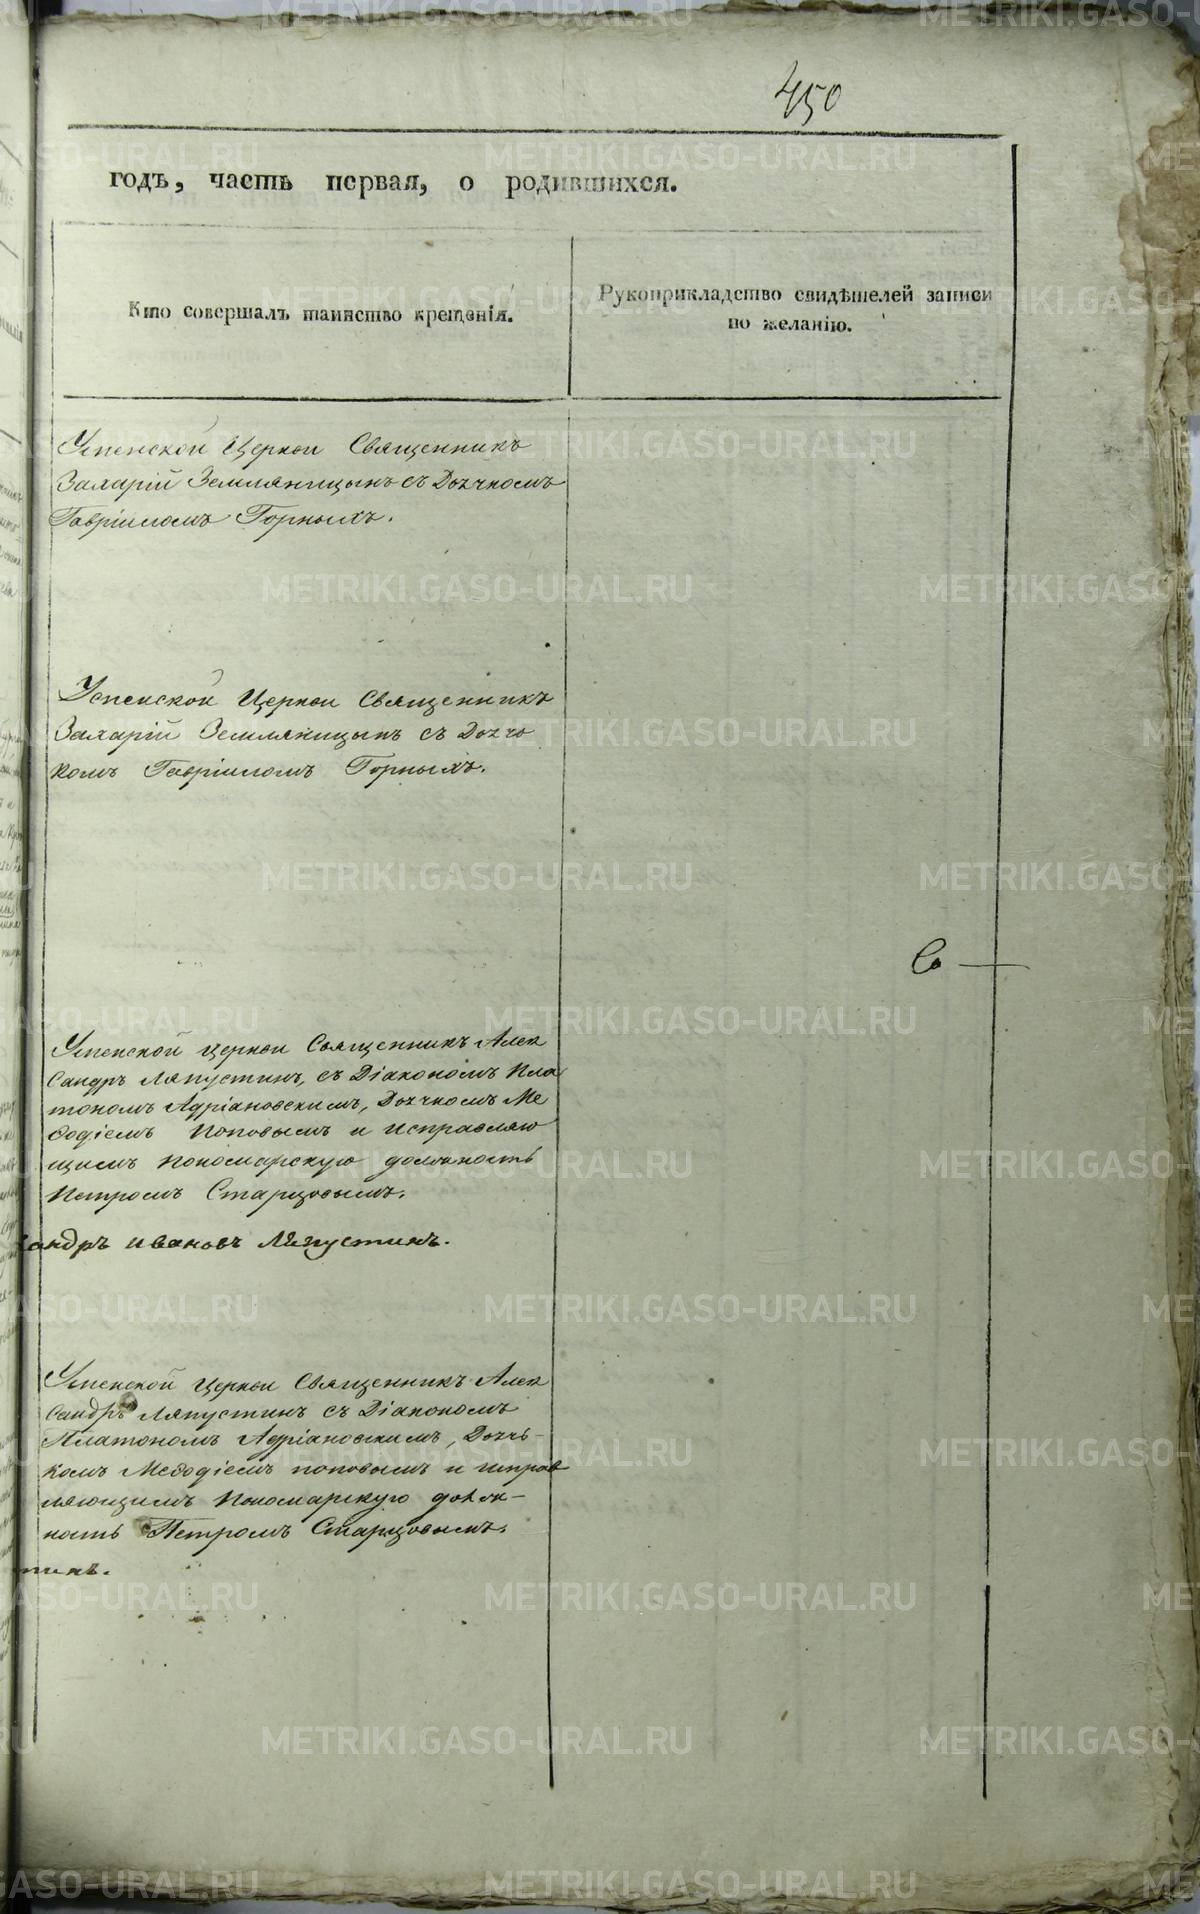 450
годъ, часть первая, о родившихся.
Кто совершалъ таинство крещенія.
Рукоприкладство свидѣтелей записи
по желанію.
Успенской Церкви Священникъ
Захарій Земляницынъ съ Дьячкомъ
Гавріиломъ Горныхъ.
Успенской Церкви Священникъ
Захарій Земляницынъ съ Дьячь
комъ Гавріиломъ Горныхъ.
Со
Успенской церкви Священникъ Алек
сандръ Ляпустинъ, съ Діакономъ Пла
тономъ Адріановскимъ, Дьячкомъ Ме
ѳодіемъ Поповымъ и исправляю
щимъ Пономарскую должность
Петромъ Старцовымъ.
сандръ Ивановъ Ляпустинъ.
Успенской Церкви Священникъ Алек
сандръ Ляпустинъ съ Діакономъ
Платономъ Адріановскимъ, Дьячь-
комъ Меѳодіемъ Поповымъ и исправ
ляющимъ Пономарскую долж-
ность Петромъ Старцовымъ.
тинъ.
METRIKI.GASO-URAL.RU